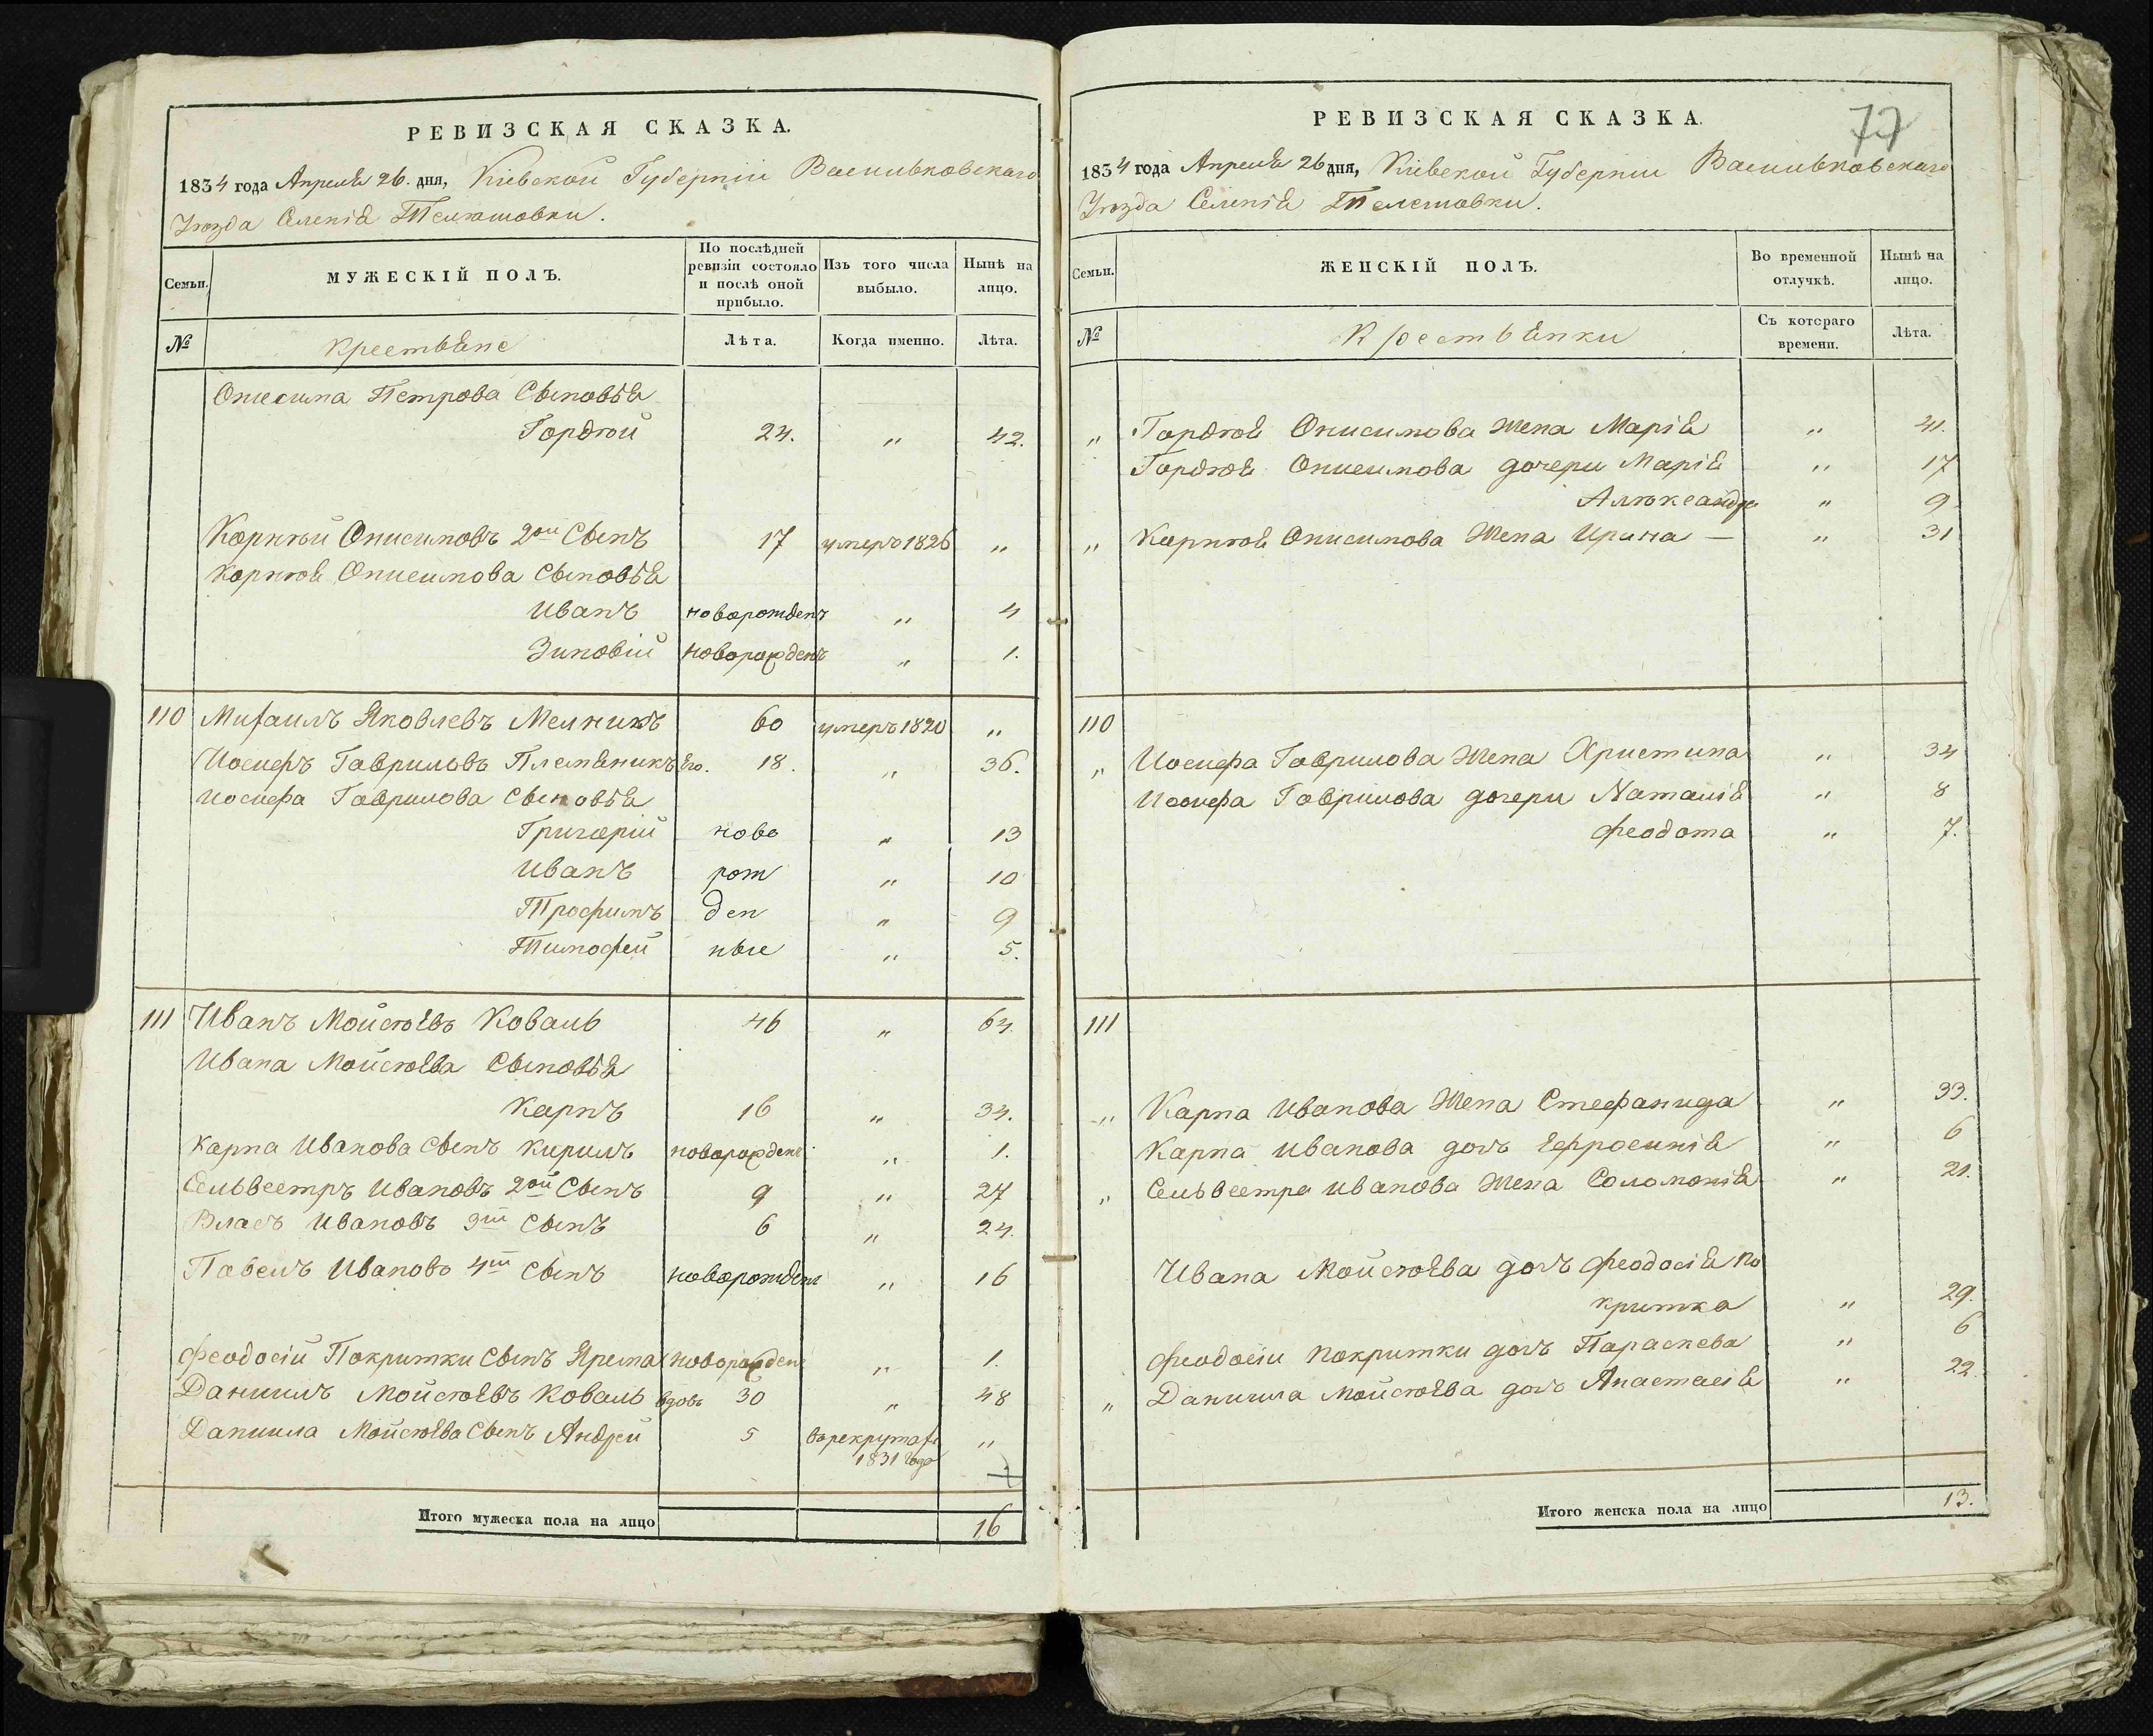 РЕВИЗСКАЯ СКАЗКА.
1834 года Апреля 26. дня, Кіевской Губерніи Васильковскаго
Уѣзда Селенія Телѣшовки.
Семьи.
МУЖЕСКІЙ ПОЛЪ.
По послѣдней ревизіи состояло и послѣ оной прибыло.
Изъ того числа выбыло.
Нынѣ на лицо.
№ Крестьяне Лѣта. Когда именно. Лѣта.
Онисима Петрова Сыновья
Гордѣй 24. „ 42.
Корнѣй Онисимовъ 2ой Сынъ 17 умеръ 1826 „
Корнѣя Онисимова Сыновья
Иванъ новорожденъ „ 4
Зиновій новорожденъ „ 1.
110 Михаилъ Яковлевъ Мелникъ 60 умеръ 1820 „
Иосифъ Гавриловъ Племяникъ Его. 18. „ 36.
Иосифа Гаврилова Сыновья
Григорій ново „ 13
Иванъ рож „ 10
Трофимъ ден „ 9
Тимофей ные „ 5.
111 Иванъ Мойсѣевъ Коваль 46 „ 64.
Ивана Мойсѣева Сыновья
Карпъ 16 „ 34.
Карпа Иванова Сынъ Кирилъ новорожденъ „ 1.
Сельвестръ Ивановъ 2ой Сынъ 9 „ 27
Власъ Ивановъ 3ій Сынъ 6 „ 24.
Павелъ Ивановъ 4ый Сынъ новорожденъ „ 16
Феодосіи Покритки Сынъ Ярема новорожденъ „ 1.
Даниилъ Мойсѣевъ Коваль вдовъ 30 „ 48
Даниила Мойсѣева Сынъ Андрей 5 въ рекрутахъ „
1831 года
Итого мужеска пола на лицо 16
77
РЕВИЗСКАЯ СКАЗКА.
1834 года Апреля 26 дня, Кіевской Губерніи Васильковскаго
Уѣзда Селенія Телешовки.
Семьи.
ЖЕНСКІЙ ПОЛЪ.
Во временной отлучкѣ.
Нынѣ на лицо.
№ Крестьянки Съ котораго времени. Лѣта.
„ Гордѣя Онисимова Жена Марія „ 41.
Гордѣя Онисимова дочери Марія „ 17
Алѣксандра „ 9
„ Корнѣя Онисимова Жена Ирина — „ 31
110
„ Иосифа Гаврилова Жена Христина „ 34
Иосифа Гаврилова дочери Наталія „ 8
Феодота „ 7.
111
„ Карпа Иванова Жена Стефанида „ 33.
Карпа Иванова дочь Ефросинія „ 6
„ Сельвестра Иванова Жена Соломонія „ 21.
Ивана Мойсѣева дочь Феодосія по
критка „ 29.
Феодосіи Покритки дочь Параскева „ 6
„ Даниила Мойсѣева дочь Анастасія „ 22.
Итого женска пола на лицо 13.